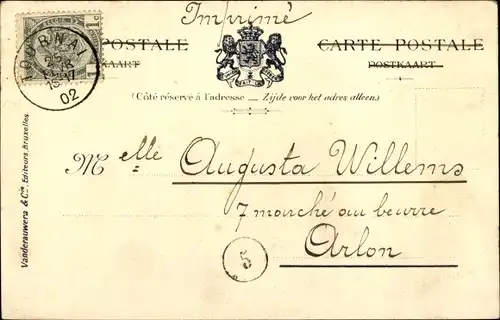 Imprimé
TOURNAI
02
1c
CARTE POSTALE
POSTALE
POSTKAART
KAART
(Côté réservé à l'adresse — Zijde voor het adres alleen.)
Melle Augusta Willems
7 marché au beurre
Arlon
5
Vanderauwera & Cie, Editeurs Bruxelles